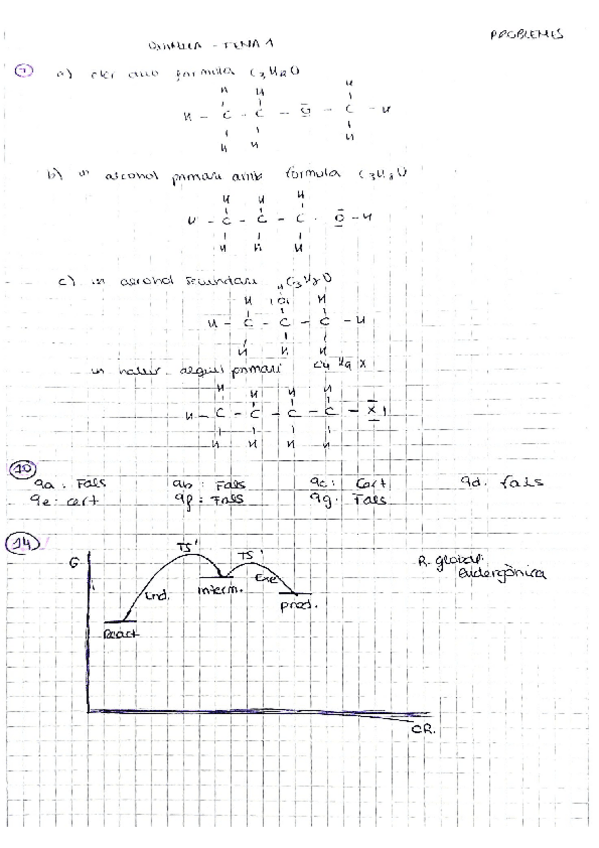 PROBLEMES
QUÍMICA - TEMA 1
a) èter amb fórmula C3H8O
H H H
H - C - C - O - C - H
H H H
b) un alcohol primari amb fórmula C3H8O
H H H
H - C - C - C - O - H
H H H
c) un alcohol secundari C3H8O
H H
H - C - C - C - H
H H H
un halur alquil primari C4H9X
H H H H
H - C - C - C - C - X
H H H H
10
9a: Fals 9b: Fals 9c: Cert 9d: fals
9e: cert 9f: Fals 9g: Fals
14
G TS' TS' R. global:
End. Interm. Exe endergònica
React prod.
CR.